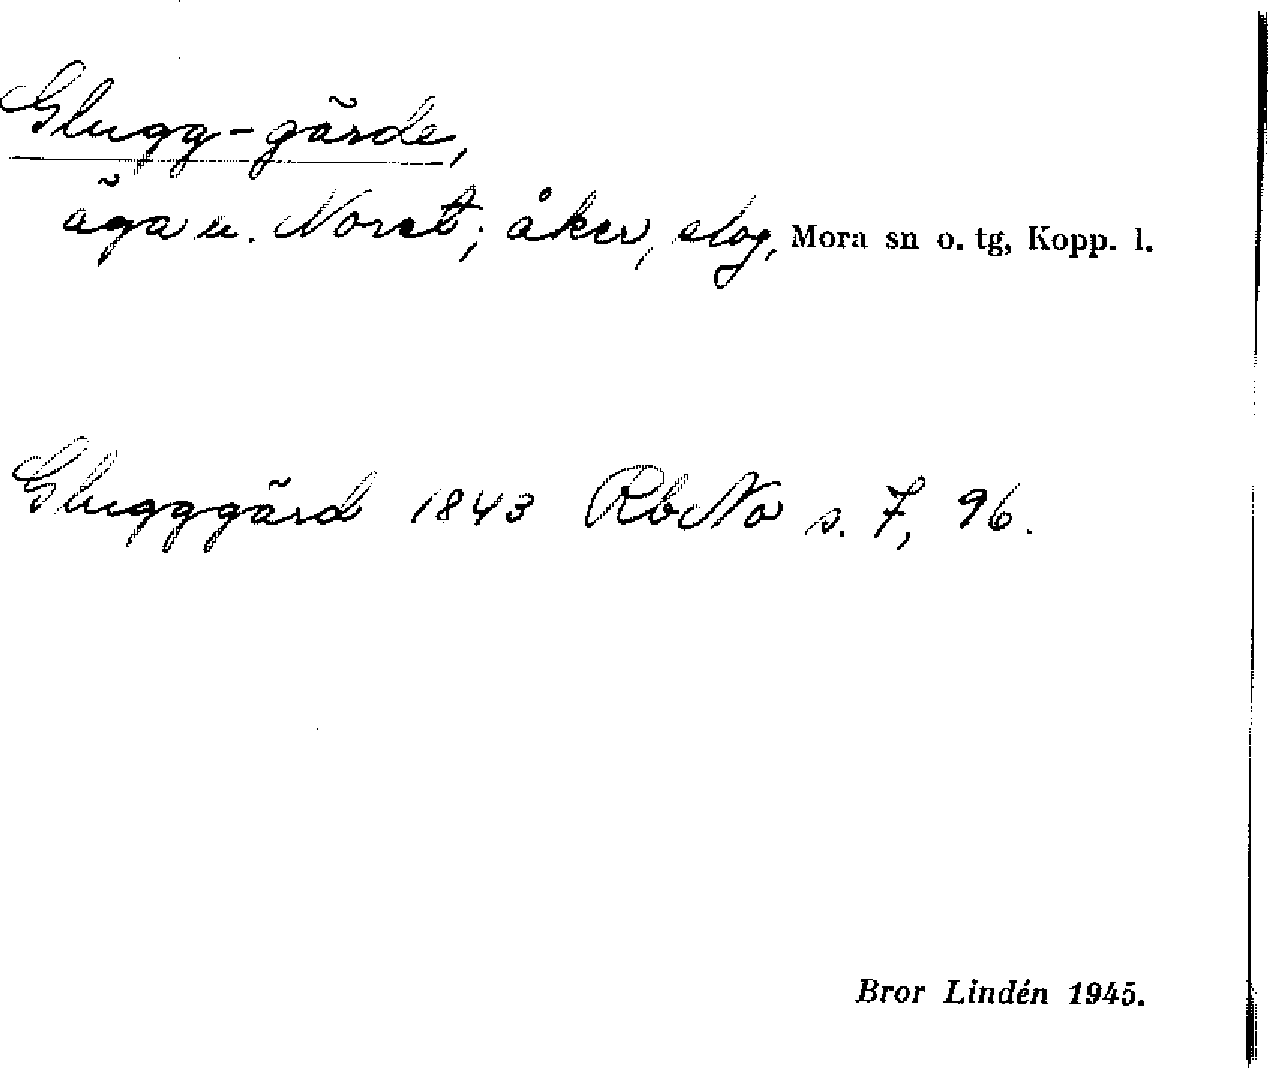 Glugg-gärde,
äga u. Noret; åker, slog, Mora sn o. tg, Kopp. l.
Glugggärd 1843 RbNo s. 7, 96.
Bror Lindén 1945.